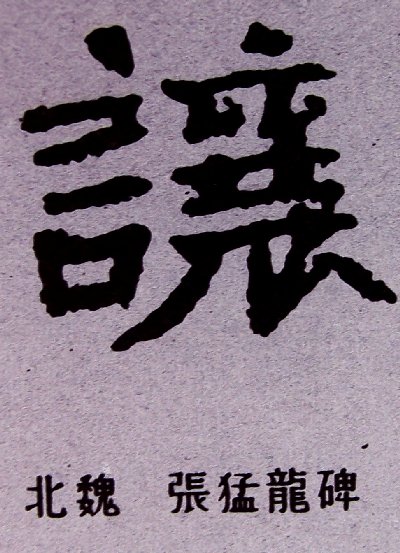 讓
北魏 張猛龍碑